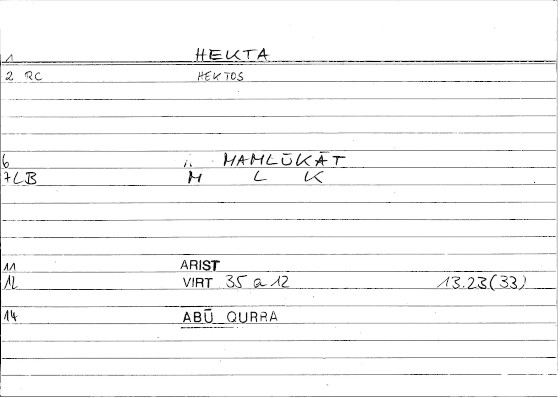 1 HEKTA
2 RC HEKTOS
6 i. MAMLŪKĀT
7LB M L K
11 ARIST
12 VIRT 35 a 12 13.23(33)
14 ABŪ QURRA